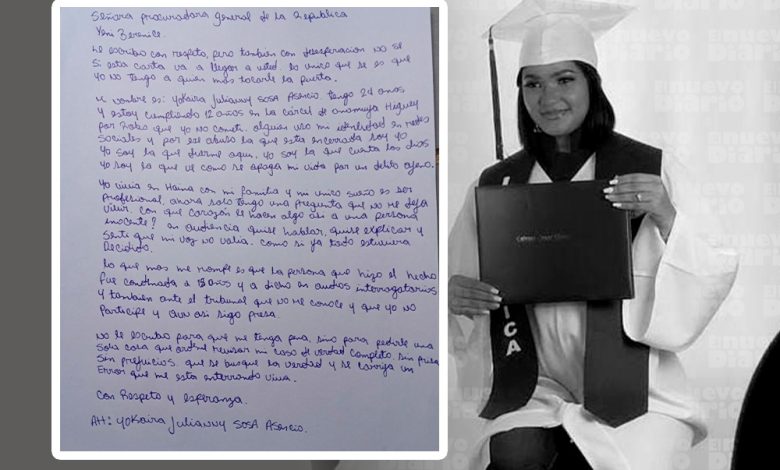 Señora procuradora general de la Republica
Yeni Berenice.
Le escribo con respeto, pero tambien con desesperacion no se
Si esta carta va a llegar a usted. lo unico que se es que
yo no tengo a quien mas tocarle la puerta.
Mi nombre es: Yokaira Julianny Sosa Asencio tengo 24 años
y estoy cumpliendo 12 años en la carcel de anamuya Higuey
por Robos que yo no cometi. alguien uso mi identidad en redes
sociales y por ese abuso la que esta encerrada soy yo
yo soy la que duerme aqui, yo soy la que cuenta los dias
yo soy la que ve como se apaga mi vida por un delito ajeno.
Yo vivia en Haina con mi familia y mi unico sueño es ser
Profesional, ahora solo tengo una pregunta que no me deja
vivir. con que corazón le hacen algo asi a una persona
inocente? en audiencia quise hablar, quise explicar y
Senti que mi voz no valia. como si ya todo estuviera
Decidido.
lo que mas me rompe es que la persona que hizo el hecho
fue condenada a años y a dicho en audios interrogatorios
y tambien ante el tribunal que no me conoce y que yo no
Participe y aun asi sigo presa.
No le escribo para que me tenga pena, sino para pedirle una
Sola cosa que ordene revisar mi caso de verdad completo, sin prisa
Sin prejuicios. que se busque la verdad y se corrija un
Error que me esta enterrando viva.
Con Respeto y esperanza.
Att: Yokaira Julianny Sosa Asencio.
ICA
El nuevo
Diario